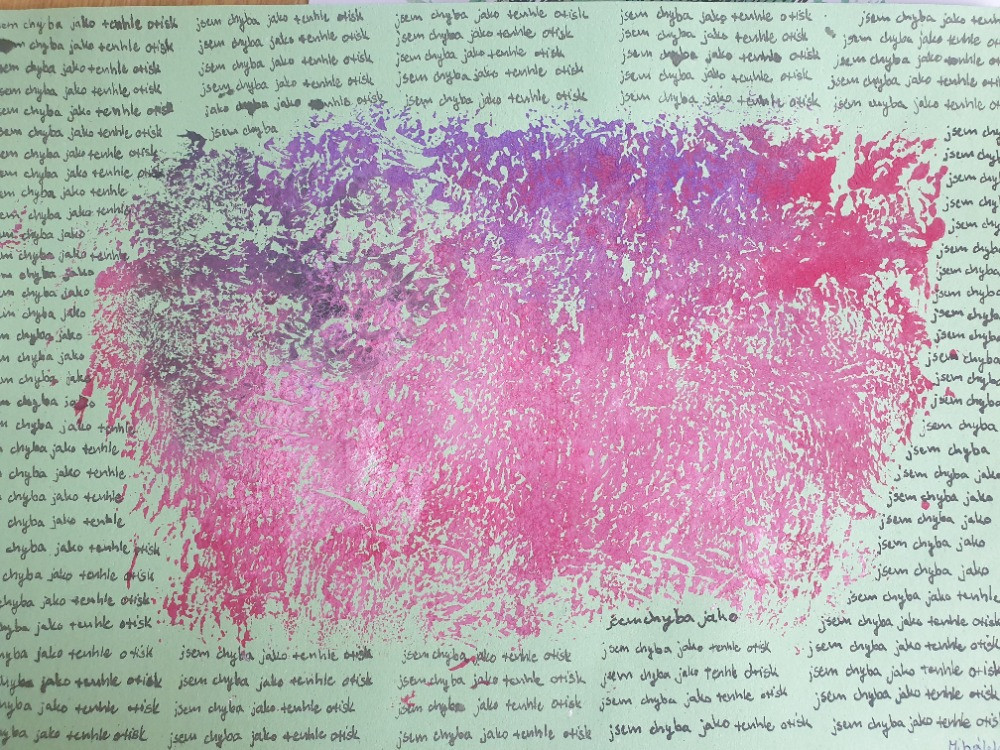 jsem chyba jako tenhle otisk jsem chyba jako tenhle otisk jsem chyba jako tenhle otisk jsem chyba jako tenhle otisk jsem chyba jako tenhle
chyba jako tenhle otisk jsem chyba jako tenhle otisk jsem chyba jako tenhle otisk jsem chyba jako tenhle otisk jsem chyba jako tenhle
sem chyba jako tenhle otisk jsem chyba jako tenhle otisk jsem chyba jako tenhle otisk jsem chyba jako tenhle otisk jsem chyba jako tenhle
sem chyba jako tenhle otisk jsem chyba jako tenhle otisk jsem chyba jako tenhle otisk jsem chyba jako tenhle otisk jsem chyba jako tenhle otisk
sem chyba jako tenhle otisk jako chyba jako tenhle otisk jsem chyba jako tenhle otisk jsem chyba jako tenhle otisk jsem chyba jako tenhle otisk
sem chyba jako tenhle otisk jsem chyba jsem chyba
sem chyba jako tenhle otisk jsem chyba
sem chyba jako tenhle otisk jsem chyba
sem chyba jako tenhle jsem chyba
chyba jako tenhle jsem chyba
chyba jako jsem chyba
chyba jako tenhle jsem chyba
chyba jako jsem chyba
chyba jako jsem chyba
chyba jako jsem chyba
chyba jako jsem chyba
chyba jako jsem chyba
chyba jako jsem chyba
chyba jako jsem chyba
chyba jako tenhle jsem chyba
chyba jako tenhle jsem chyba
chyba jako tenhle jsem chyba
chyba jako tenhle jsem chyba jako
chyba jako tenhle jsem chyba jako
chyba jako tenhle otisk jsem chyba jako
chyba jako tenhle otisk jsem chyba jako
chyba jako tenhle otisk jsem chyba jako tenhle
chyba jako tenhle otisk jsem chyba jako jsem chyba jako tenhle
chyba jako tenhle otisk jsem chyba jako tenhle otisk jsem chyba jako tenhle otisk jsem chyba jako tenhle otisk jsem chyba jako tenhle otisk
chyba jako tenhle otisk jsem chyba jako tenhle otisk jsem chyba jako tenhle otisk jsem chyba jako tenhle otisk jsem chyba jako tenhle otisk
chyba jako tenhle otisk jsem chyba jako tenhle otisk jsem chyba jako tenhle otisk jsem chyba jako tenhle otisk jsem chyba jako tenhle otisk
chyba jako tenhle otisk jsem chyba jako tenhle otisk jsem chyba jako tenhle otisk jsem chyba jako tenhle otisk jsem chyba jako tenhle otisk